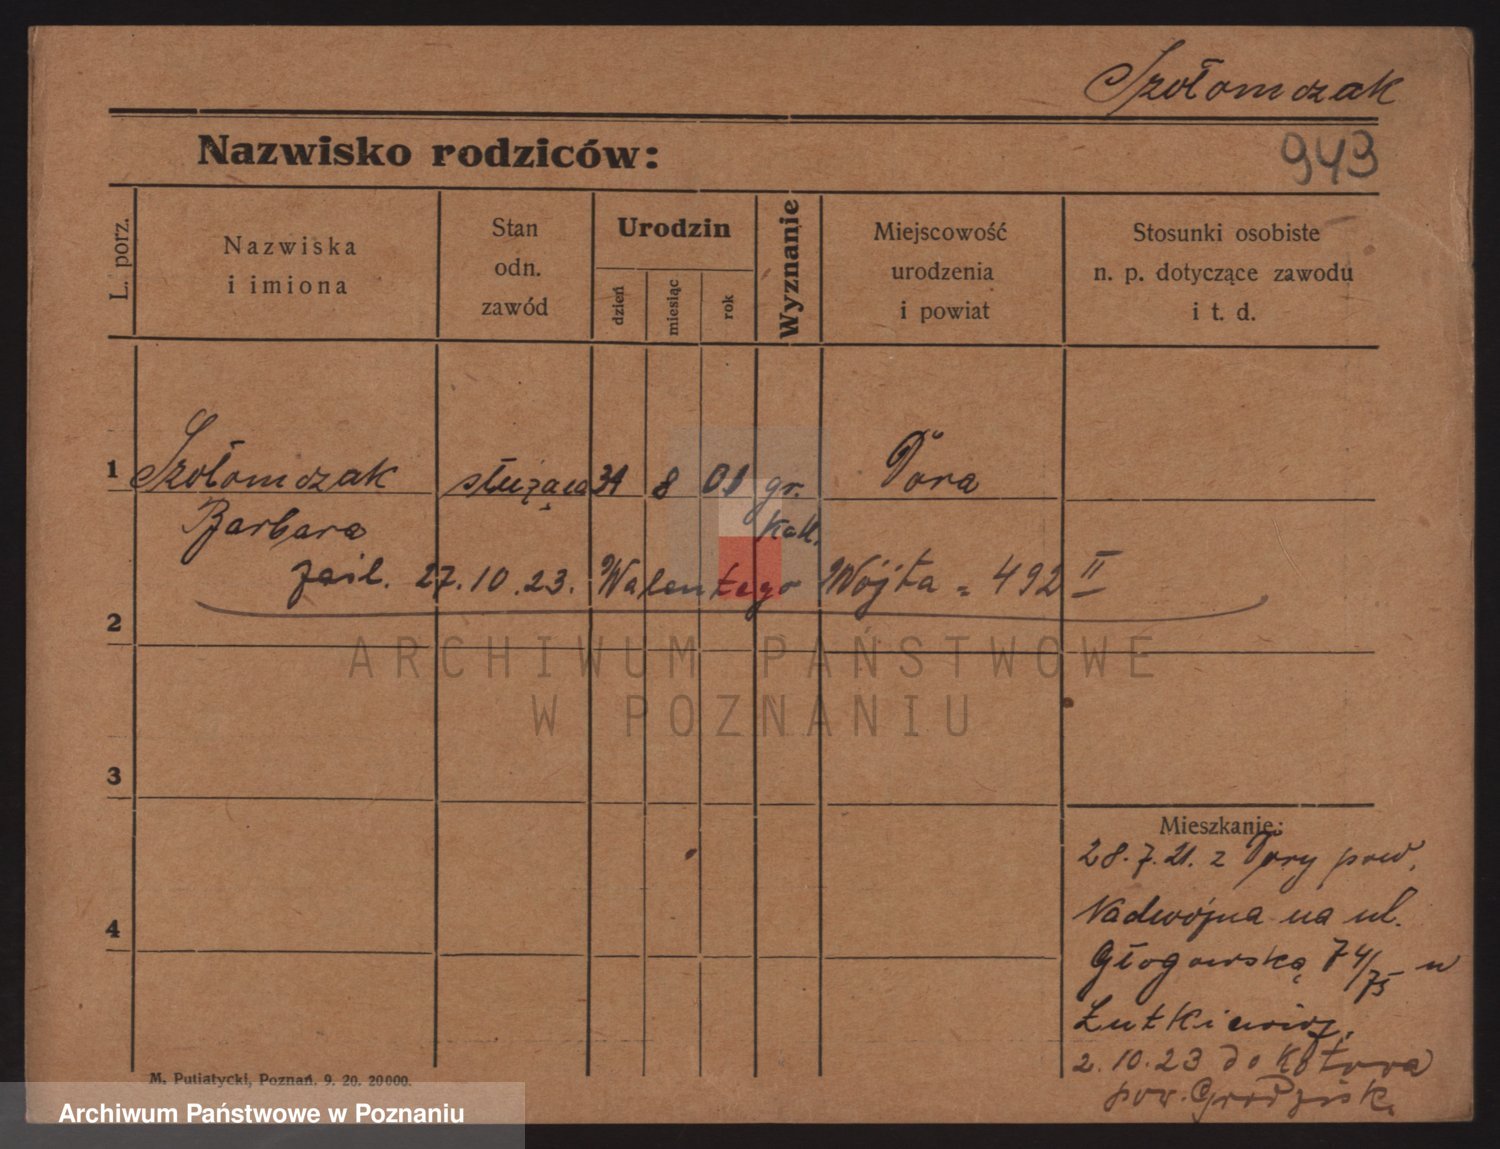 Szołomczak
943
Nazwisko rodziców:
L. porz.
Nazwiska
i imiona
Stan
odn.
zawód
Urodzin
dzień
miesiąc
rok
Wyznanie
Miejscowość
urodzenia
i powiat
Stosunki osobiste
n. p. dotyczące zawodu
i t. d.
1 Szołomczak służąca 31 8 01 gr. Pora
Barbara kat.
27.10.23. Walentego Wójta = 492 II
2
3
4
ARCHIWUM PAŃSTWOWE
W POZNANIU
Mieszkanie:
28.7.21. z Pory pow.
Nadwójna na ul.
Głogowską 74/75 u
2.10.23 do
pow. Grodzisk.
M. Putiatycki, Poznań. 9. 20. 20000.
Archiwum Państwowe w Poznaniu